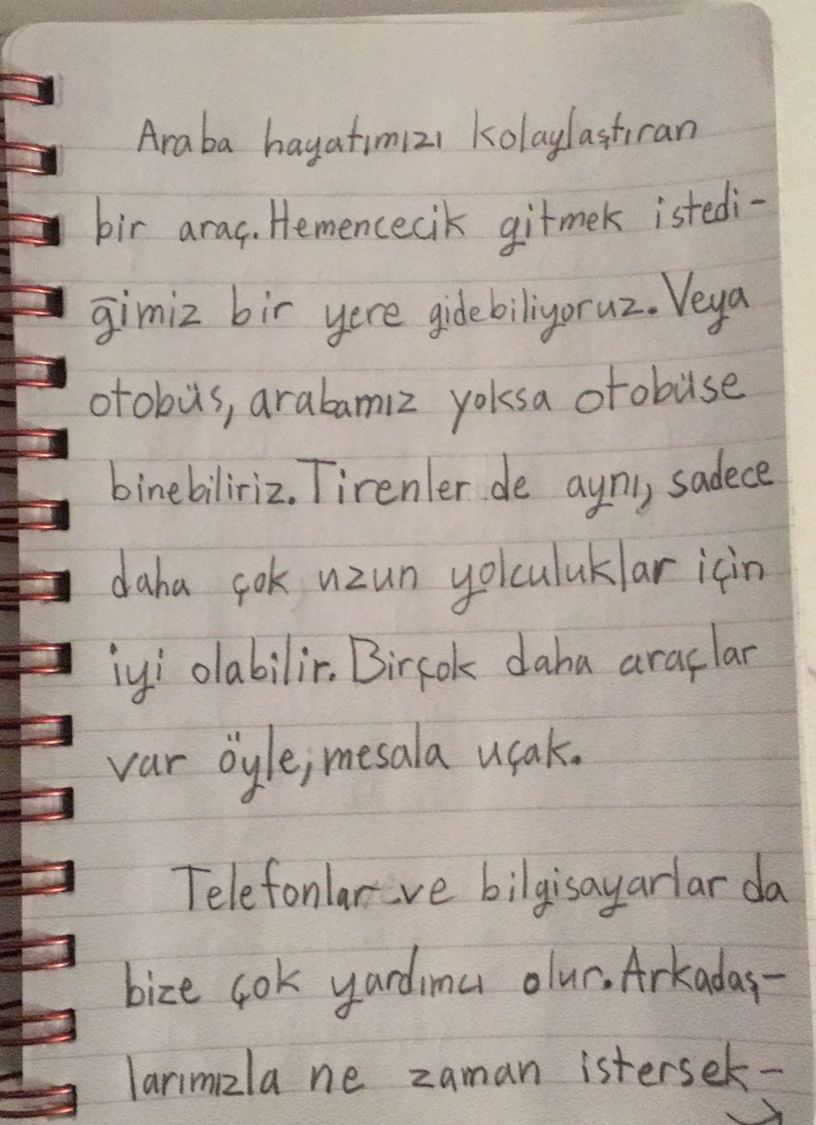 Araba hayatımızı kolaylaştıran
bir araç. Hemencecik gitmek istedi-
ğimiz bir yere gidebiliyoruz. Veya
otobüs, arabamız yoksa otobüse
binebiliriz. Tirenler de aynı, sadece
daha çok uzun yolculuklar için
iyi olabilir. Birçok daha araçlar
var öyle, mesala uçak.
Telefonlar ve bilgisayarlar da
bize çok yardımcı olur. Arkadaş-
larımızla ne zaman istersek-
→